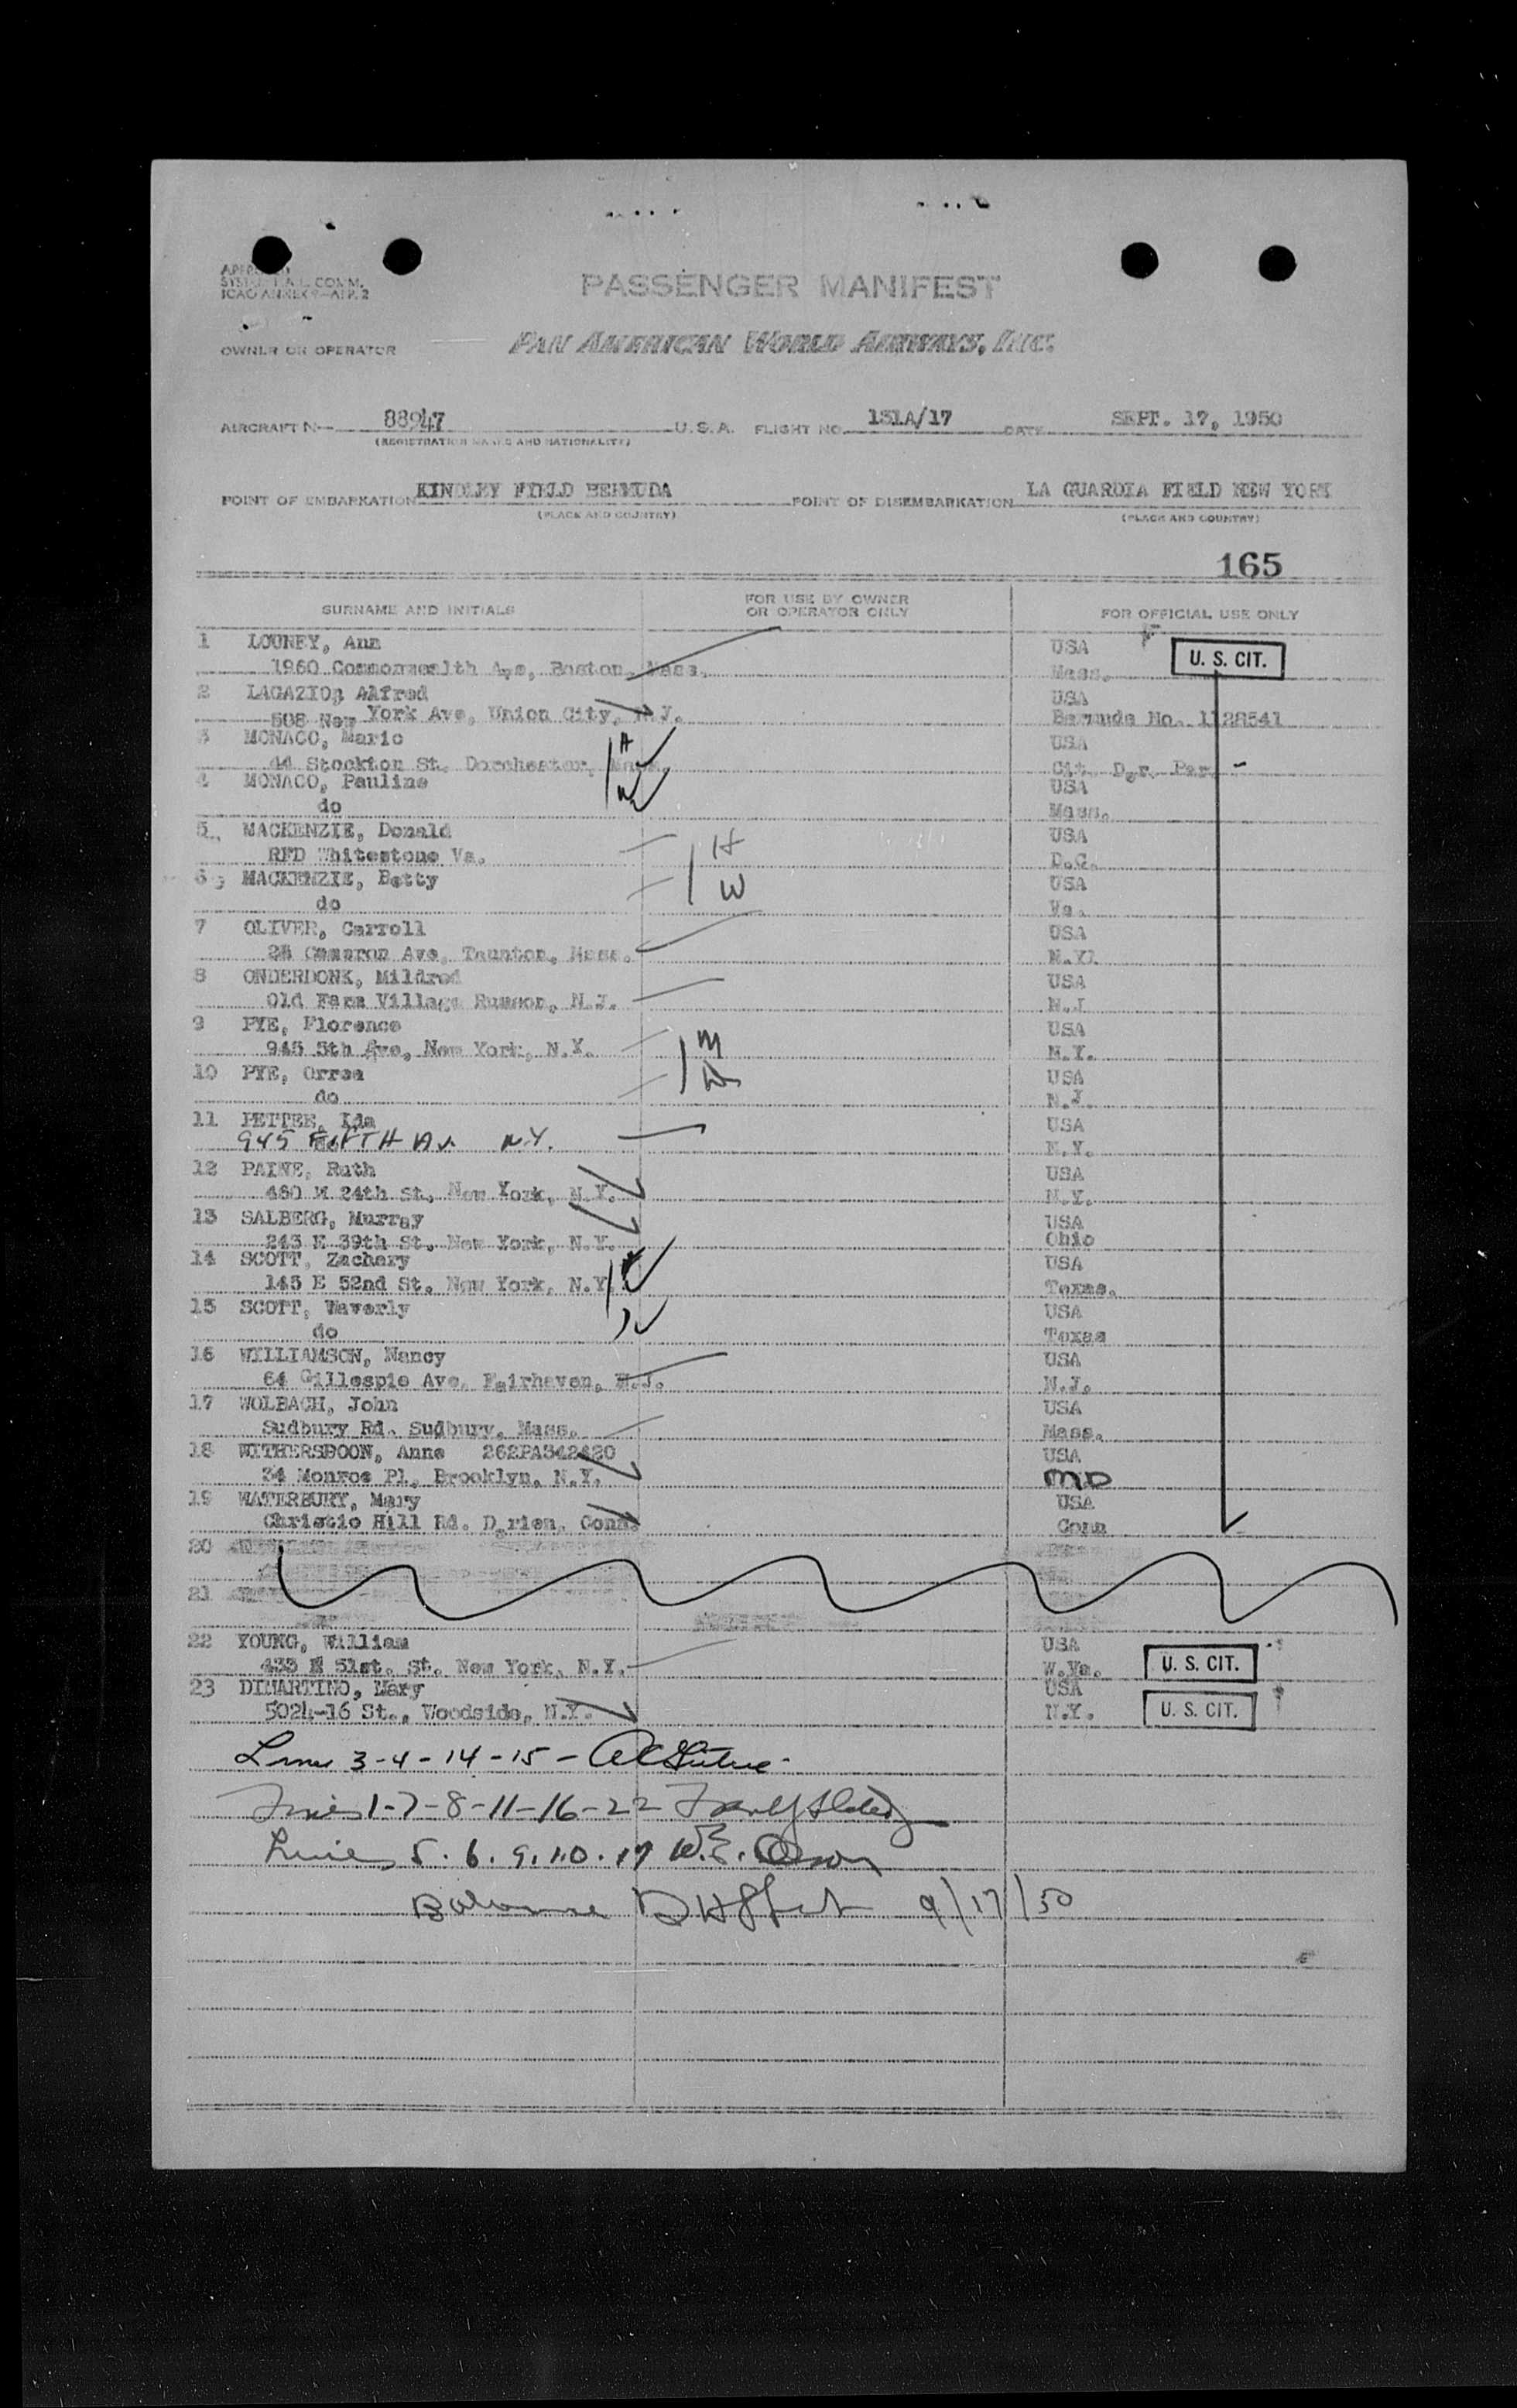 PASSENGER MANIFEST
ICAO ANNEX 9—APP. 2
OWNER OR OPERATOR PAN AMERICAN WORLD AIRWAYS, INC.
AIRCRAFT N— 88947 U.S.A. FLIGHT NO. 131A/17 DATE SEPT. 17, 1950
(REGISTRATION MARKS AND NATIONALITY)
POINT OF EMBARKATION KINDLEY FIELD BERMUDA POINT OF DISEMBARKATION LA GUARDIA FIELD NEW YORK
(PLACE AND COUNTRY) (PLACE AND COUNTRY)
165
SURNAME AND INITIALS FOR USE BY OWNER OR OPERATOR ONLY FOR OFFICIAL USE ONLY
1 LOONEY, Ann USA U. S. CIT.
1960 Commonwealth Ave, Boston, Mass. Mass.
2 LAGAZIO, Alfred USA
508 New York Ave, Union City, N.J. Bermuda No. 1128541
3 MONACO, Mario H USA
44 Stockton St. Dorchester, Mass. Cit. Der. Par. -
4 MONACO, Pauline W USA
do Mass.
5 MACKENZIE, Donald H USA
RFD Whitestone Va. D.C.
6 MACKENZIE, Betty W USA
do Va.
7 OLIVER, Carroll USA
25 Cameron Ave, Taunton, Mass. N.Y.
8 ONDERDONK, Mildred USA
Old Farm Village Rumson, N.J. N.J
9 PYE, Florence M USA
945 5th Ave, New York, N.Y. N.Y.
10 PYE, Orrea D USA
do N.J.
11 PETTER, Ida USA
945 FIFTH AV. N.Y. N.Y.
12 PAINE, Ruth USA
460 W 24th St, New York, N.Y. N.Y.
13 SALBERG, Murray USA
243 E 39th St. New York, N.Y. Ohio
14 SCOTT, Zachary USA
145 E 52nd St, New York, N.Y. Texas.
15 SCOTT, Waverly USA
do Texas
16 WILLIAMSON, Nancy USA
64 Gillespie Ave, Fairhaven, N.J. N.J.
17 WOLBACH, John USA
Sudbury Rd. Sudbury, Mass. Mass.
18 WITHERSBOON, Anne 262PA342420 USA
34 Monroe Pl, Brooklyn, N.Y. MD
19 WATERBURY, Mary USA
Christie Hill Rd. Darien, Conn. Conn
20
21
22 YOUNG, William USA
433 E 51st. St. New York, N.Y. W.Va. U. S. CIT.
23 DIMARTINO, Mary USA
5024-16 St., Woodside, N.Y. N.Y. U. S. CIT.
Lines 3-4-14-15-
Lines 1-7-8-11-16-22
Lines 5.6.9.10.17 W.E. Olson
Balance 9/17/50